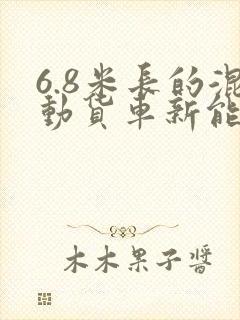 6.8米長的混
動貨車新能
木木果子醬